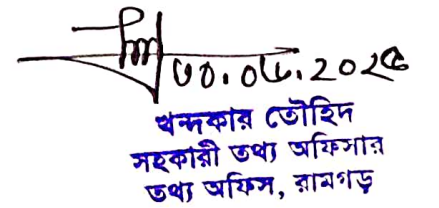 ৩০.০৬.২০২৫
খন্দকার তৌহিদ
সহকারী তথ্য অফিসার
তথ্য অফিস, রামগড়